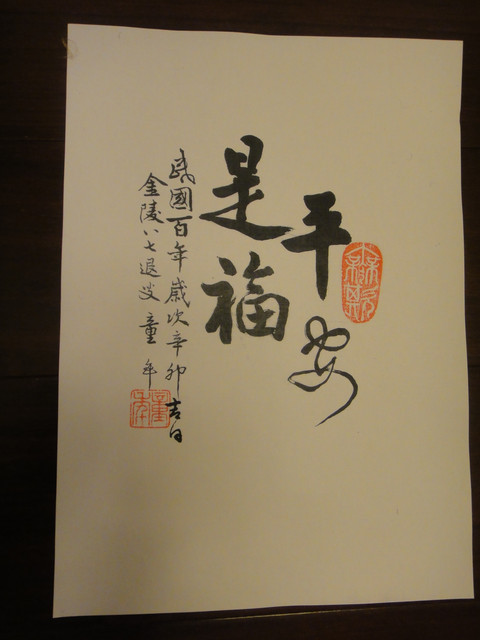 平安
是福
民國一百年歲次辛卯吉日
金陵八七退叟童年
童年